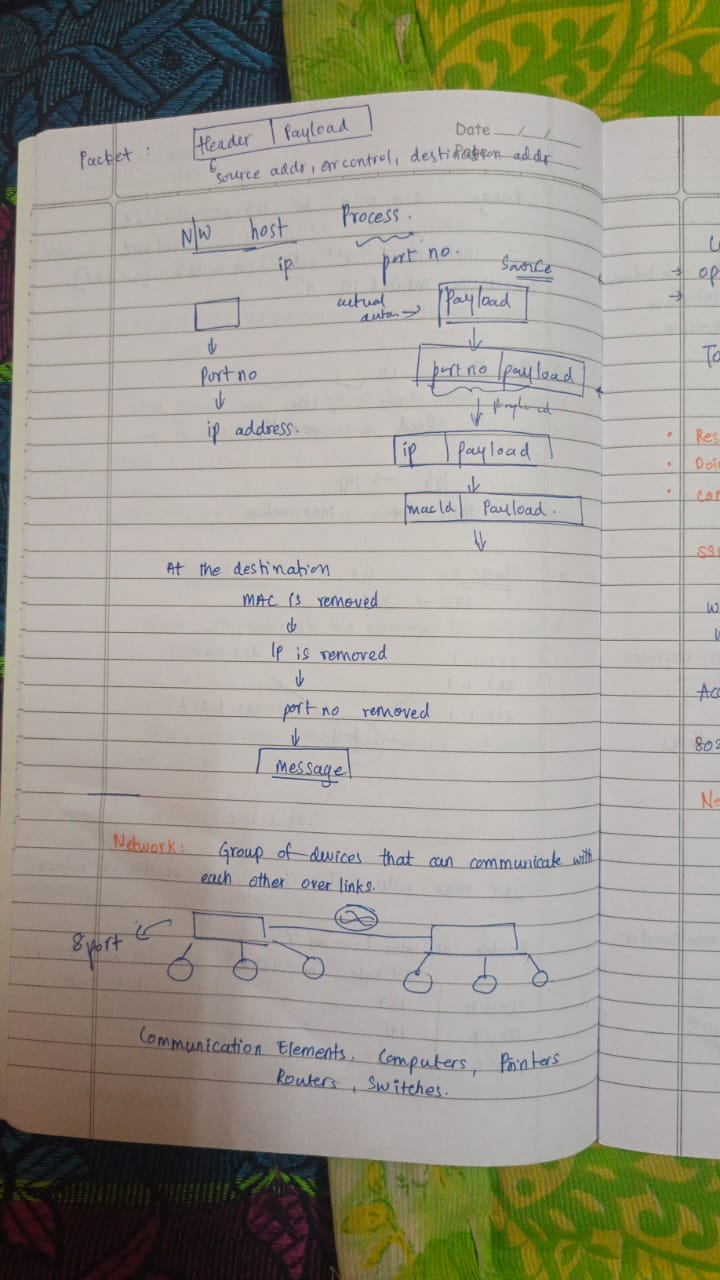 Packet : Header | Payload
Date __/__/__
Page
source addr, err control, destination addr
N/W host Process.
ip port no.
source
actual data → Payload
↓
Port no
port no | payload
↓
payload
ip address.
ip | payload
macId | Payload.
At the destination
MAC is removed
↓
Ip is removed
↓
port no removed
↓
message
Network: Group of devices that can communicate with
each other over links.
8 port
Communication Elements. Computers, Printers
Routers, Switches.
→ op
→
To
• Res
• Doi
• con
W
Acc
802
Ne